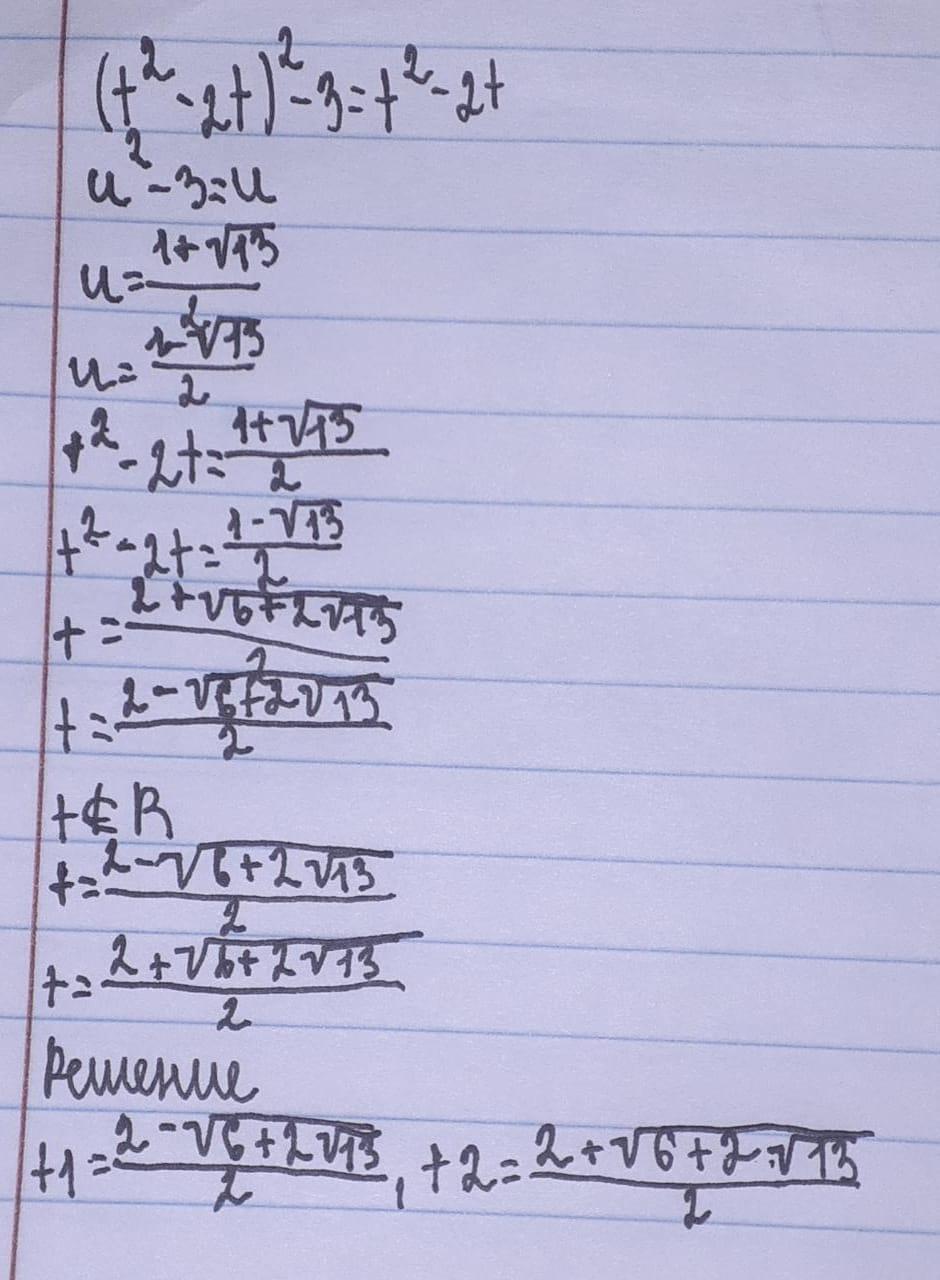 (t² - 2t)² - 3 = t² - 2t
u² - 3 = u
u = (1 + √13)/2
u = (1 - √13)/2
t² - 2t = (1 + √13)/2
t² - 2t = (1 - √13)/2
t = (2 + √(6 + 2√13))/2
t = (2 - √(6 + 2√13))/2
t ∉ R
t = (2 - √(6 + 2√13))/2
t = (2 + √(6 + 2√13))/2
Решение
t1 = (2 - √(6 + 2√13))/2, t2 = (2 + √(6 + 2·√13))/2